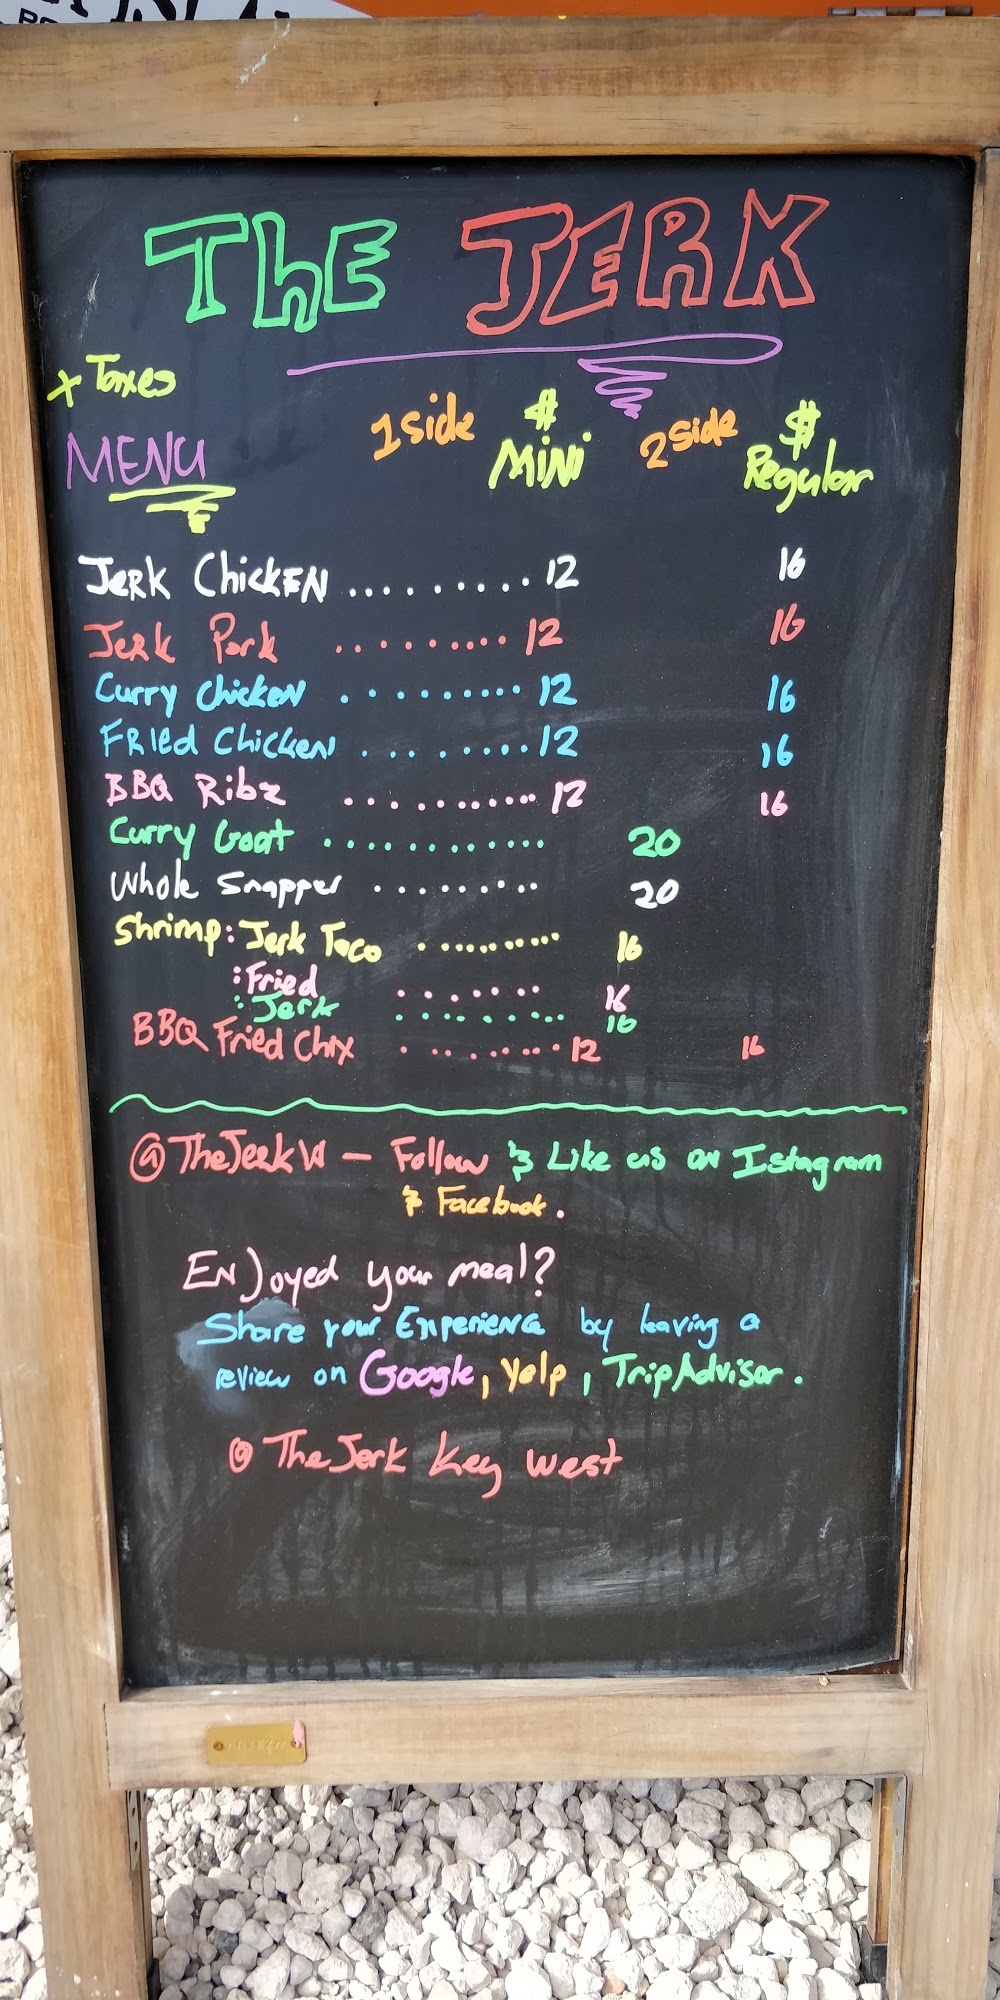 The JERK
+ Taxes
MENU 1 side $ Mini 2 side $ Regular
Jerk Chicken ......... 12 16
Jerk Pork ......... 12 16
Curry Chicken .......... 12 16
Fried Chicken ......... 12 16
BBQ Ribz ........... 12 16
Curry Goat ............. 20
Whole Snapper ......... 20
Shrimp: Jerk Taco ......... 16
: Fried ....... 16
: Jerk ......... 16
BBQ Fried Chix ......... 12 16
@TheJerkW – Follow & Like us on Istagram
& Facebook.
Enjoyed your meal?
Share your Experience by leaving a
review on Google, Yelp, TripAdvisor.
@ TheJerk Key West